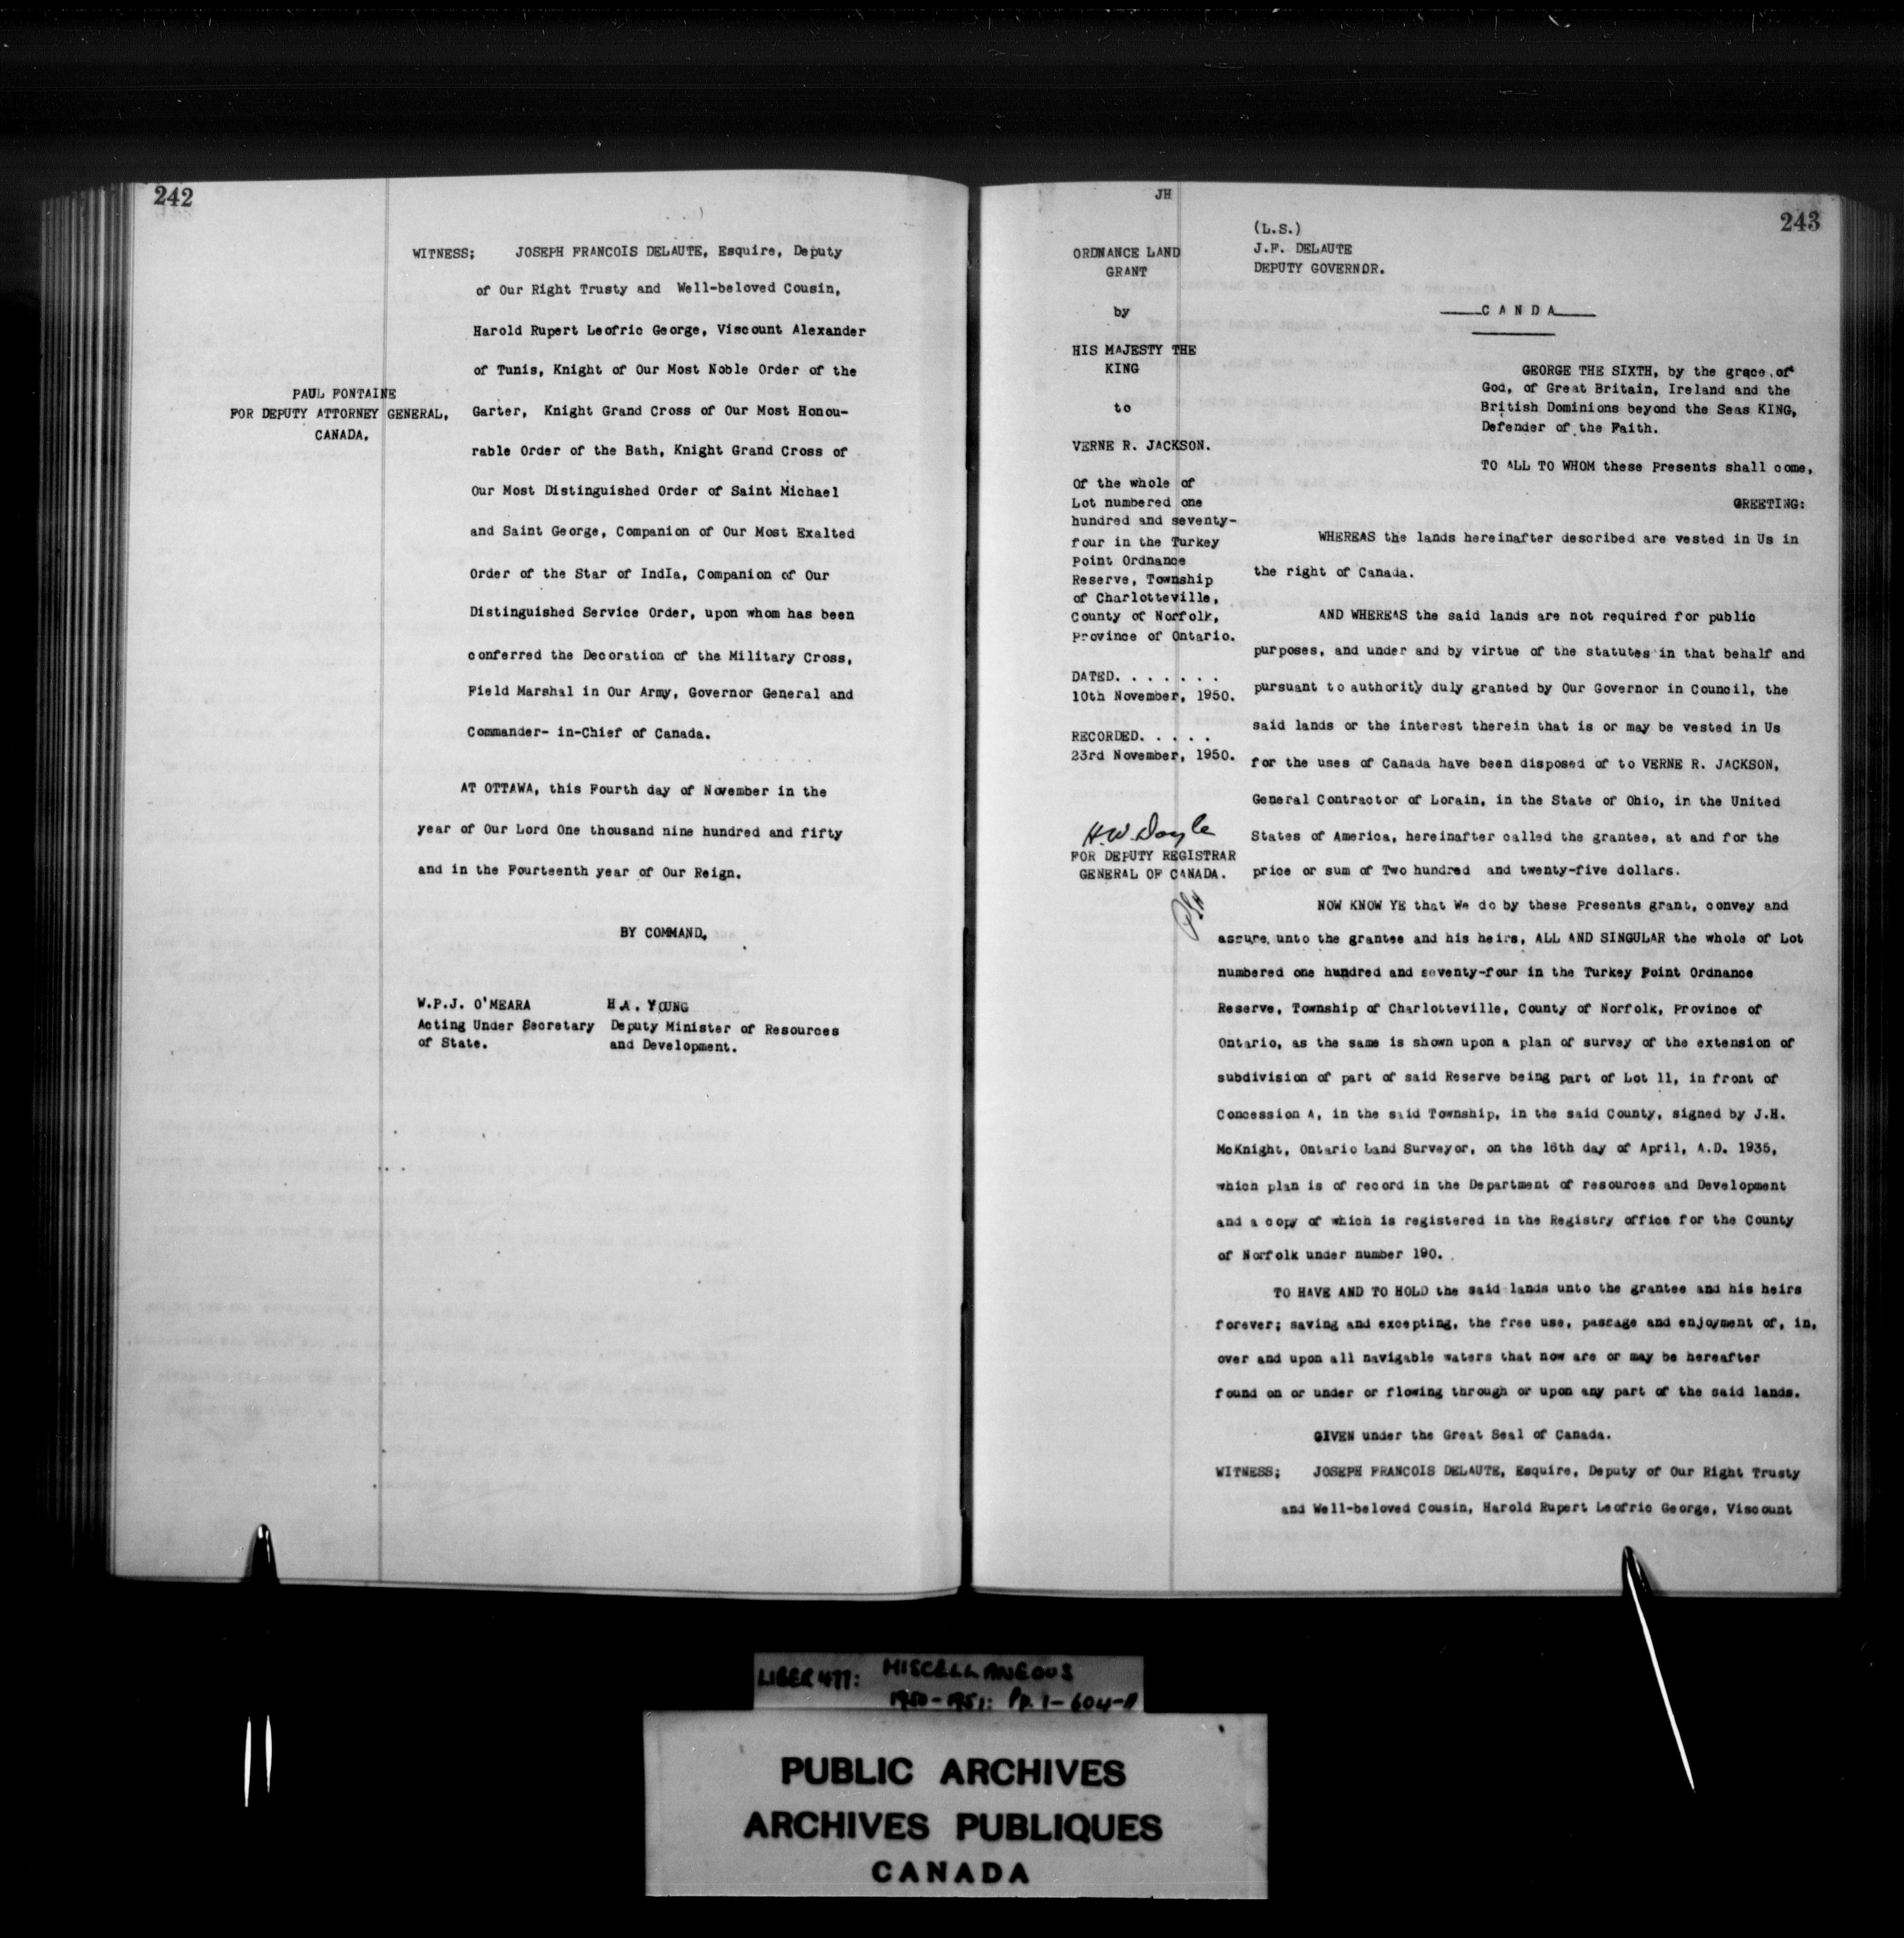 242
WITNESS; JOSEPH FRANCOIS DELAUTE, Esquire, Deputy
of Our Right Trusty and Well-beloved Cousin,
Harold Rupert Leofric George, Viscount Alexander
of Tunis, Knight of Our Most Noble Order of the
Garter, Knight Grand Cross of Our Most Honou-
rable Order of the Bath, Knight Grand Cross of
Our Most Distinguished Order of Saint Michael
and Saint George, Companion of Our Most Exalted
Order of the Star of IndIa, Companion of Our
Distinguished Service Order, upon whom has been
conferred the Decoration of the Military Cross,
Field Marshal in Our Army, Governor General and
Commander- in-Chief of Canada.
PAUL FONTAINE
FOR DEPUTY ATTORNEY GENERAL,
CANADA.
AT OTTAWA, this Fourth day of November in the
year of Our Lord One thousand nine hundred and fifty
and in the Fourteenth year of Our Reign.
BY COMMAND,
W.P.J. O'MEARA
Acting Under Secretary
of State.
H.A. YOUNG
Deputy Minister of Resources
and Development.
JH
243
ORDNANCE LAND
GRANT
by
HIS MAJESTY THE
KING
to
VERNE R. JACKSON.
Of the whole of
Lot numbered one
hundred and seventy-
four in the Turkey
Point Ordnance
Reserve, Township
of Charlotteville,
County of Norfolk,
Province of Ontario.
DATED. . . . . . .
10th November, 1950.
RECORDED. . . . .
23rd November, 1950.
H.W. Doyle
FOR DEPUTY REGISTRAR
GENERAL OF CANADA.
(L.S.)
J.F. DELAUTE
DEPUTY GOVERNOR.
C A N D A
GEORGE THE SIXTH, by the grace of
God, of Great Britain, Ireland and the
British Dominions beyond the Seas KING,
Defender of the Faith.
TO ALL TO WHOM these Presents shall come,
GREETING:
WHEREAS the lands hereinafter described are vested in Us in
the right of Canada.
AND WHEREAS the said lands are not required for public
purposes, and under and by virtue of the statutes in that behalf and
pursuant to authority duly granted by Our Governor in Council, the
said lands or the interest therein that is or may be vested in Us
for the uses of Canada have been disposed of to VERNE R. JACKSON,
General Contractor of Lorain, in the State of Ohio, in the United
States of America, hereinafter called the grantee, at and for the
price or sum of Two hundred and twenty-five dollars.
NOW KNOW YE that We do by these Presents grant, convey and
assure unto the grantee and his heirs, ALL AND SINGULAR the whole of Lot
numbered one hundred and seventy-four in the Turkey Point Ordnance
Reserve, Township of Charlotteville, County of Norfolk, Province of
Ontario, as the same is shown upon a plan of survey of the extension of
subdivision of part of said Reserve being part of Lot 11, in front of
Concession A, in the said Township, in the said County, signed by J.H.
McKnight, Ontario Land Surveyor, on the 16th day of April, A.D. 1935,
which plan is of record in the Department of resources and Development
and a copy of which is registered in the Registry office for the County
of Norfolk under number 190.
TO HAVE AND TO HOLD the said lands unto the grantee and his heirs
forever; saving and excepting, the free use, passage and enjoyment of, in,
over and upon all navigable waters that now are or may be hereafter
found on or under or flowing through or upon any part of the said lands.
GIVEN under the Great Seal of Canada.
WITNESS; JOSEPH FRANCOIS DELAUTE, Esquire, Deputy of Our Right Trusty
and Well-beloved Cousin, Harold Rupert Leofric George, Viscount
LIBER 477: MISCELLANEOUS
1950-1951: Pp. 1-604-A
PUBLIC ARCHIVES
ARCHIVES PUBLIQUES
CANADA